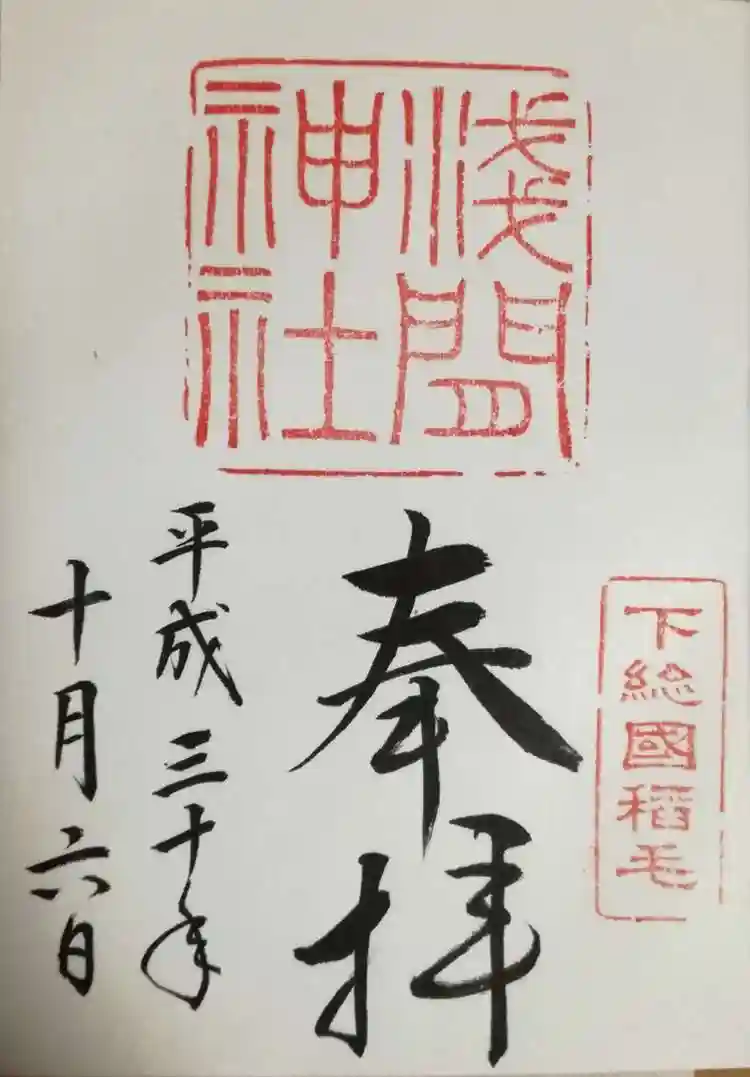 淺間
神社
下総國稻毛
奉拝
平成三十年
十月六日